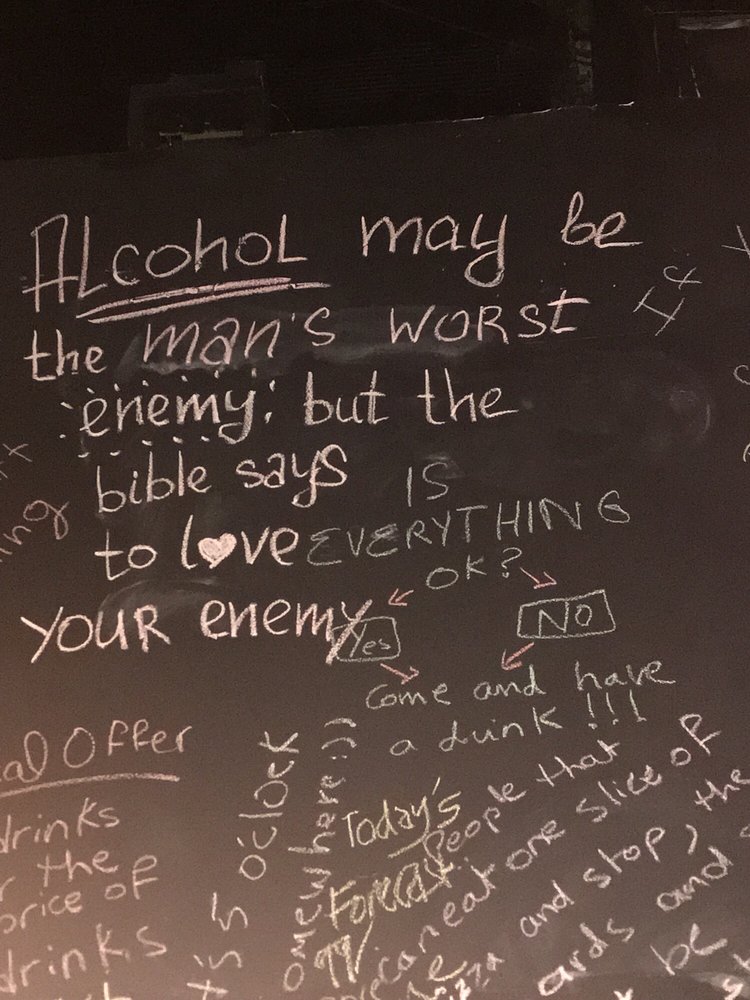 ALcohoL may be
the man's WORSt
enemy: but the
bible says
to love
YOUR enemy
IS
EVERYTHING
OK?
Yes
NO
Come and have
a drink !!!
If
xx
ing
al Offer
drinks
the
price of
drinks
t's 5 o'clock
omewhere :))
Today's
Forecast:
People that
can eat one slice of
pizza and stop, the
ards and
be